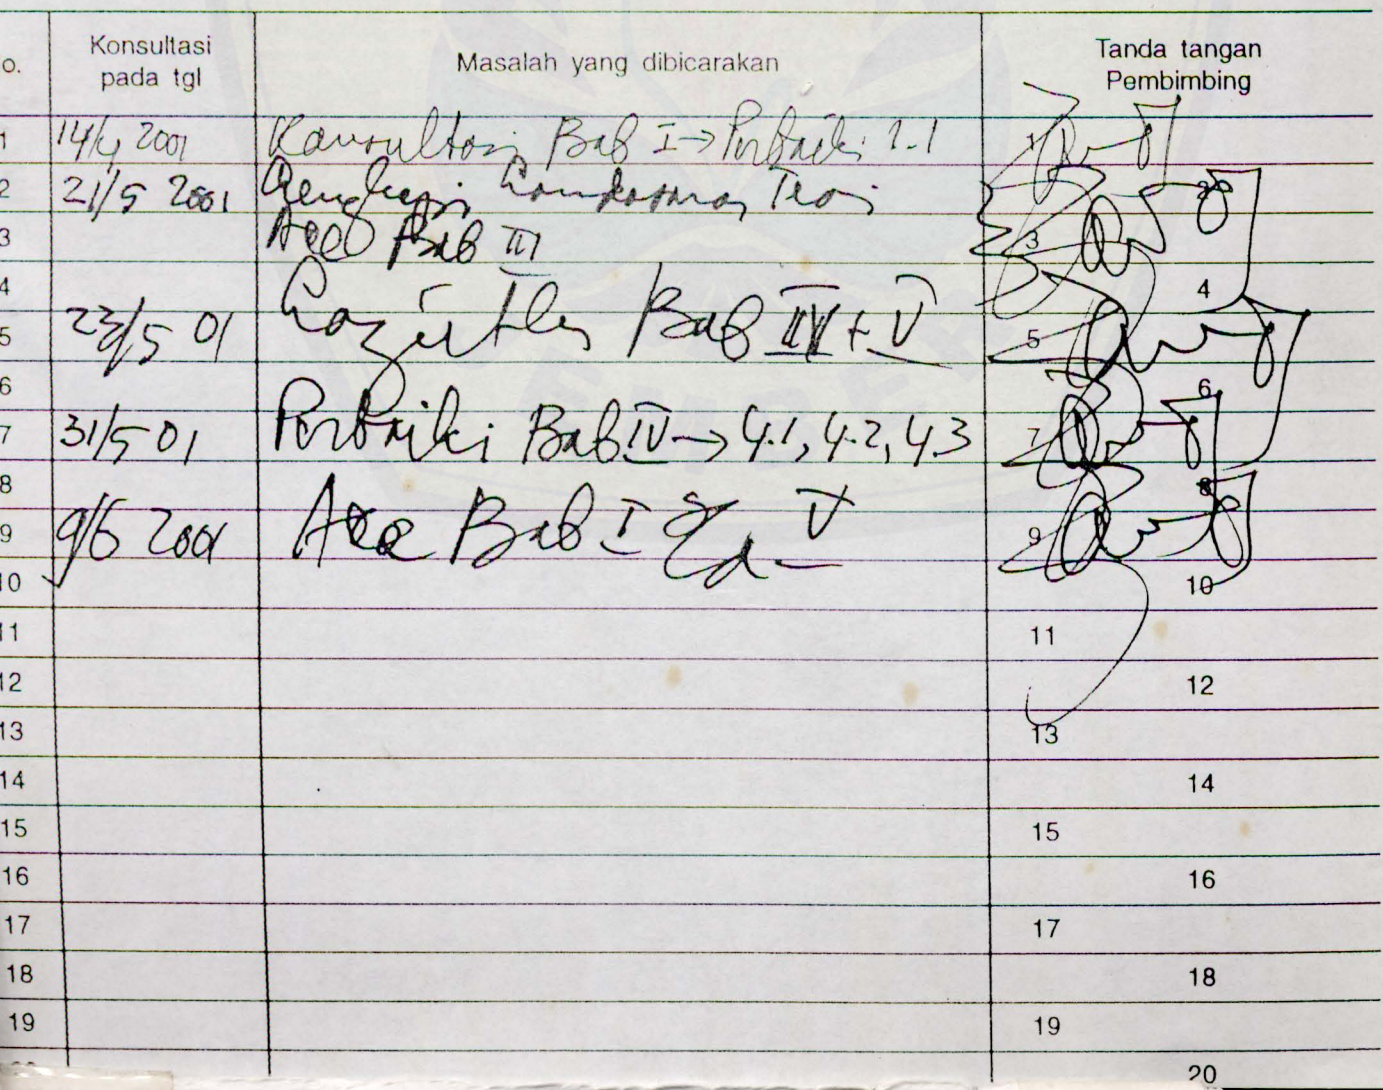 o. Konsultasi pada tgl Masalah yang dibicarakan Tanda tangan Pembimbing
1 14/4 2001 Konsultasi Bab I → Perbaiki 1.1 1
2 21/5 2001 Lengkapi Landasan Teori 2
3 Acc Bab III 3
4 4
5 23/5 01 Lanjutkan Bab IV + V 5
6 6
7 31/5 01 Perbaiki Bab IV → 4.1, 4.2, 4.3 7
8 8
9 9/6 2001 Acc Bab I V 9
10 10
11 11
12 12
13 13
14 14
15 15
16 16
17 17
18 18
19 19
20